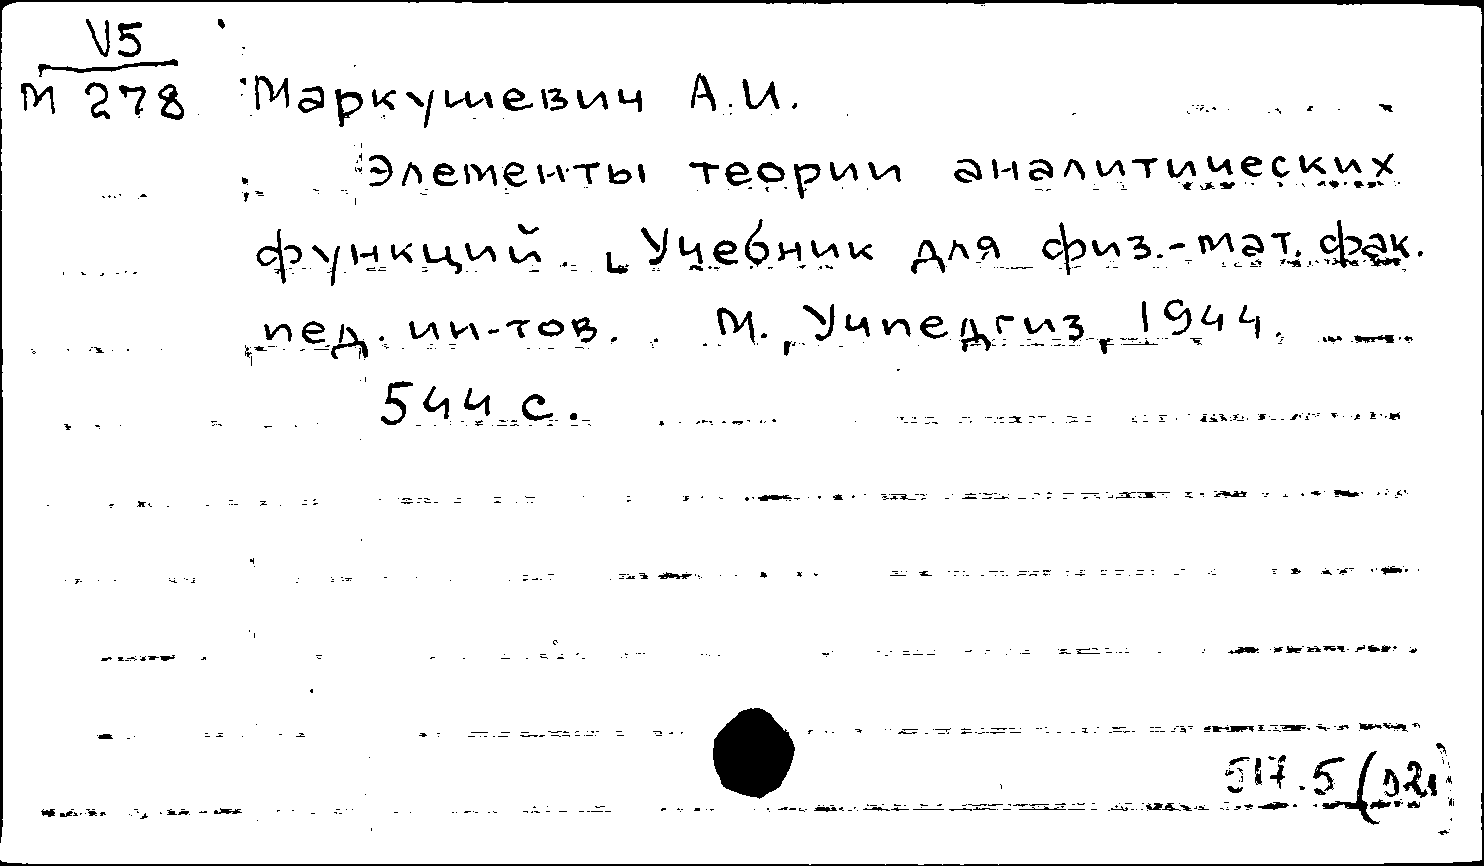 V5
М 278 Маркушевич А.И.
Элементы теории аналитических
функций. Учебник для физ.-мат. фак.
пед. ин-тов. М., Учпедгиз, 1944.
544 с.
517.5 (021)